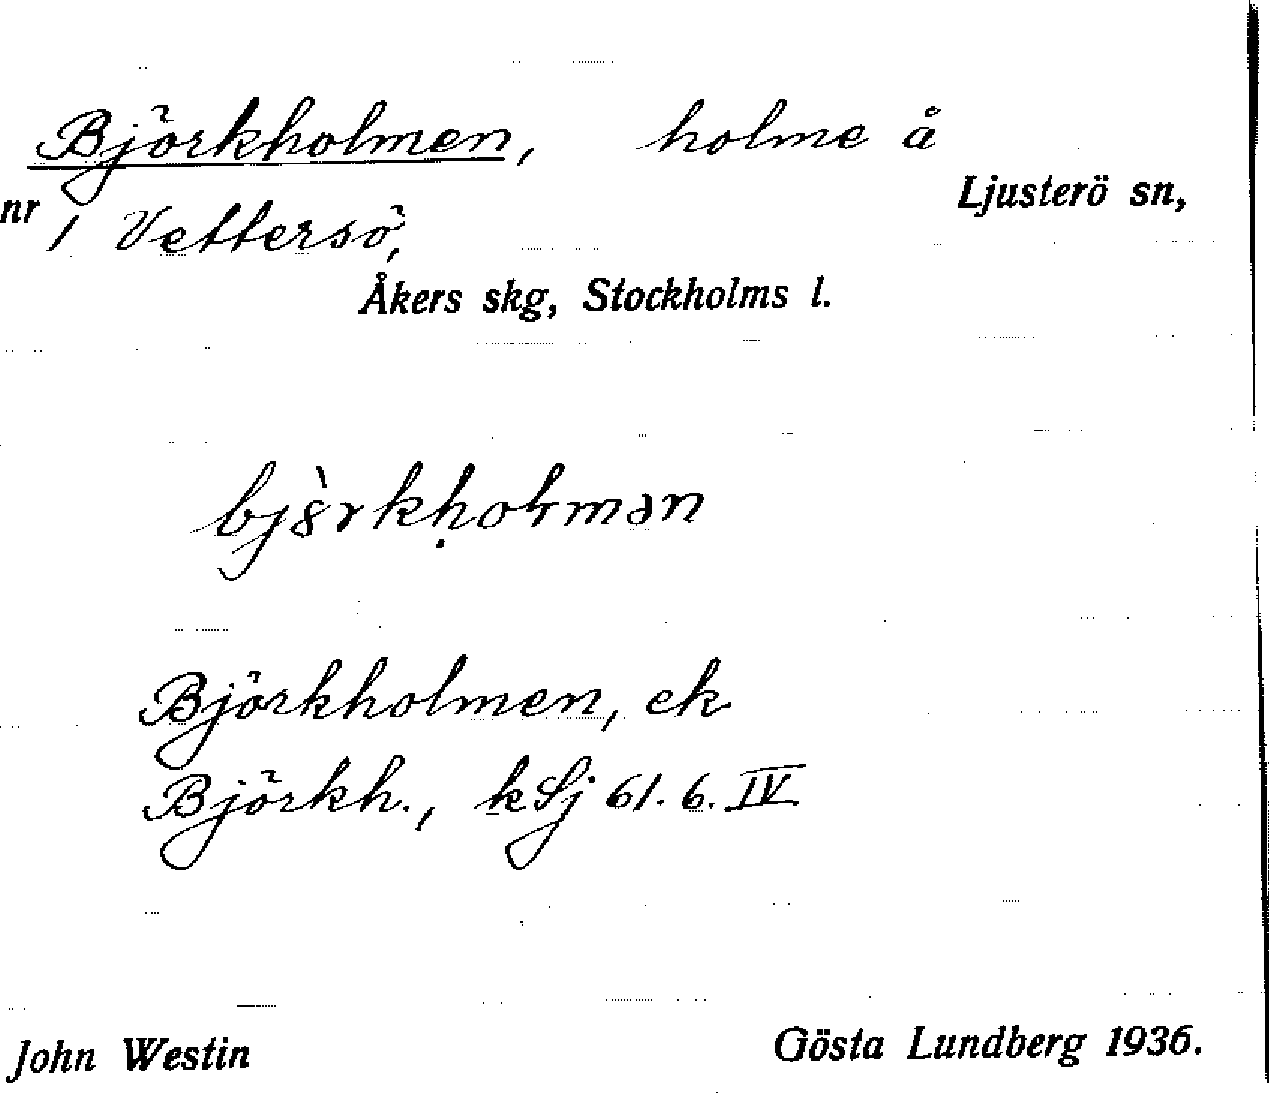 Björkholmen, holme å
Ljusterö sn,
nr 1 Vettersö,
Åkers skg, Stockholms l.
bjö̀rkḥoɫmən
Björkholmen, ek
Björkh., kSj 61. 6. IV
John Westin Gösta Lundberg 1936.